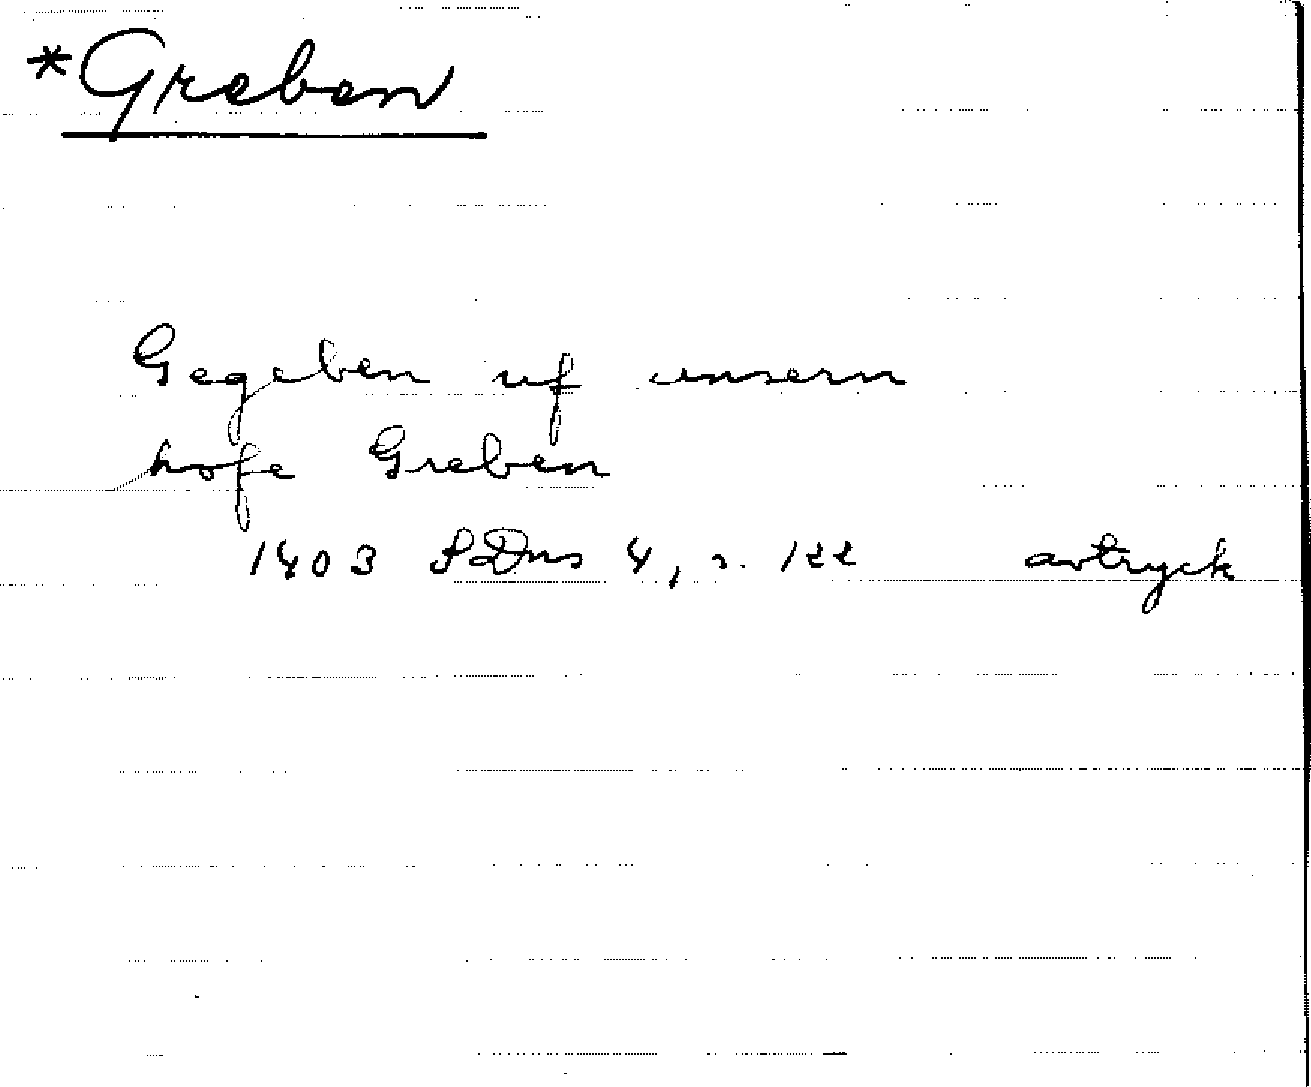 *Greben
Gegeben uf unserm
hofe Greben
1403 SDns 4, s. 122 avtryck